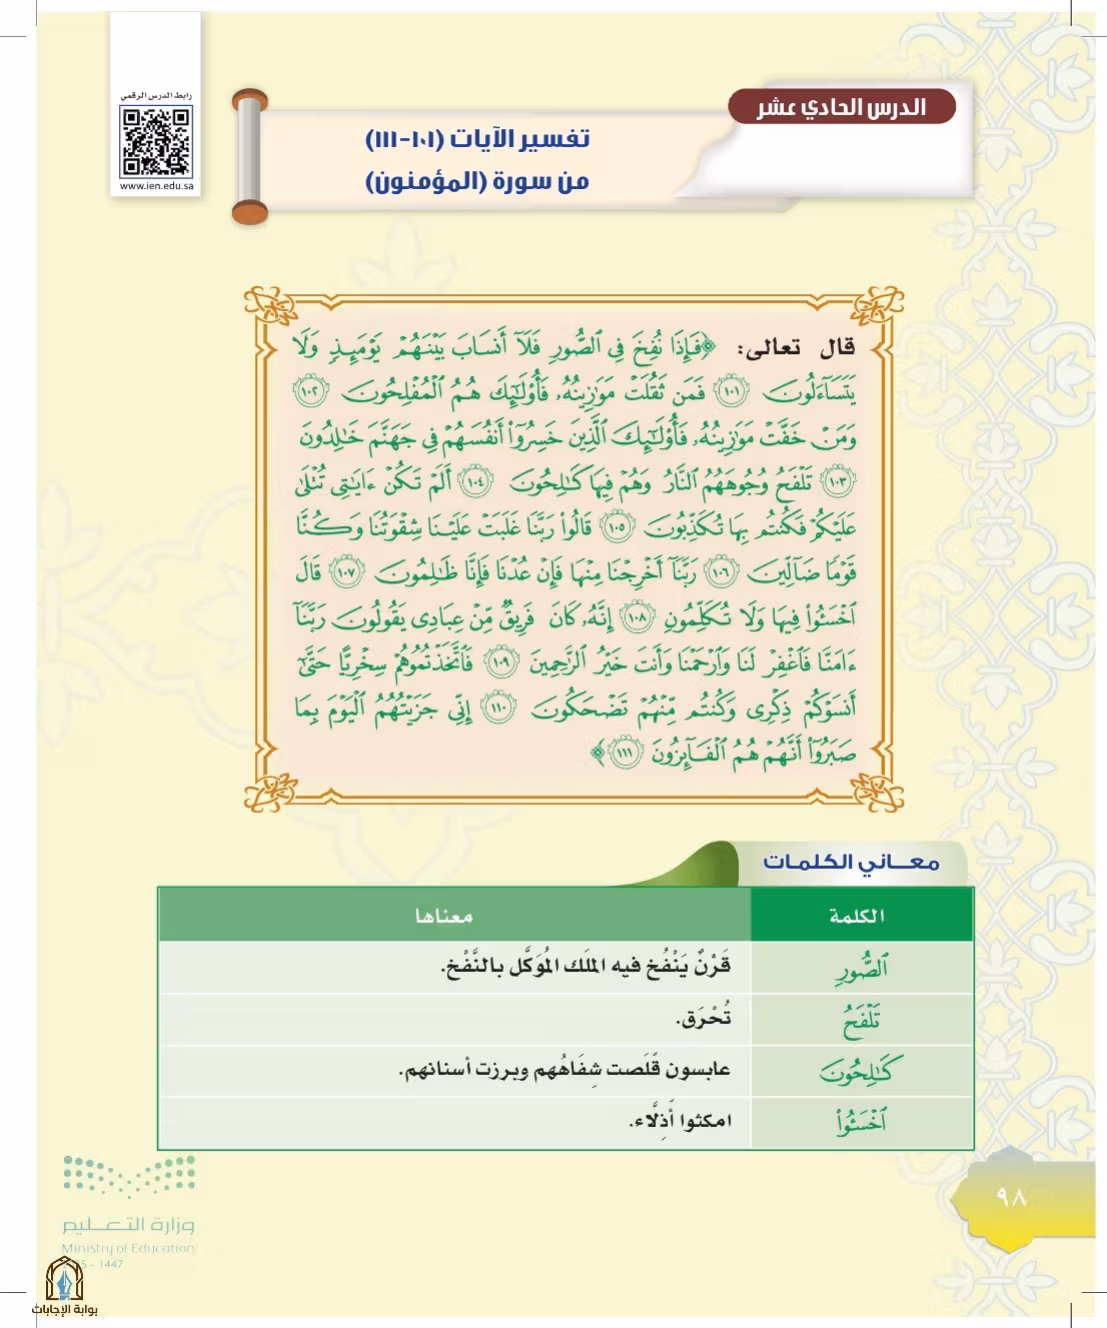 رابط الدرس الرقمي
www.ien.edu.sa
الدرس الحادي عشر
تفسير الآيات (١٠١-١١١)
من سورة (المؤمنون)
قال تعالى: ﴿فَإِذَا نُفِخَ فِي ٱلصُّورِ فَلَآ أَنسَابَ بَيْنَهُمْ يَوْمَئِذٍ وَلَا
يَتَسَآءَلُونَ ١٠١ فَمَن ثَقُلَتْ مَوَٰزِينُهُۥ فَأُو۟لَٰٓئِكَ هُمُ ٱلْمُفْلِحُونَ ١٠٢
وَمَنْ خَفَّتْ مَوَٰزِينُهُۥ فَأُو۟لَٰٓئِكَ ٱلَّذِينَ خَسِرُوٓا۟ أَنفُسَهُمْ فِي جَهَنَّمَ خَٰلِدُونَ
١٠٣ تَلْفَحُ وُجُوهَهُمُ ٱلنَّارُ وَهُمْ فِيهَا كَٰلِحُونَ ١٠٤ أَلَمْ تَكُنْ ءَايَٰتِى تُتْلَىٰ
عَلَيْكُمْ فَكُنتُم بِهَا تُكَذِّبُونَ ١٠٥ قَالُوا۟ رَبَّنَا غَلَبَتْ عَلَيْنَا شِقْوَتُنَا وَكُنَّا
قَوْمًا ضَآلِّينَ ١٠٦ رَبَّنَآ أَخْرِجْنَا مِنْهَا فَإِنْ عُدْنَا فَإِنَّا ظَٰلِمُونَ ١٠٧ قَالَ
ٱخْسَـُٔوا۟ فِيهَا وَلَا تُكَلِّمُونِ ١٠٨ إِنَّهُۥ كَانَ فَرِيقٌ مِّنْ عِبَادِى يَقُولُونَ رَبَّنَآ
ءَامَنَّا فَٱغْفِرْ لَنَا وَٱرْحَمْنَا وَأَنتَ خَيْرُ ٱلرَّٰحِمِينَ ١٠٩ فَٱتَّخَذْتُمُوهُمْ سِخْرِيًّا حَتَّىٰٓ
أَنسَوْكُمْ ذِكْرِى وَكُنتُم مِّنْهُمْ تَضْحَكُونَ ١١٠ إِنِّى جَزَيْتُهُمُ ٱلْيَوْمَ بِمَا
صَبَرُوٓا۟ أَنَّهُمْ هُمُ ٱلْفَآئِزُونَ ١١١﴾
معاني الكلمات
الكلمة معناها
ٱلصُّورِ قَرْنٌ يَنْفُخ فيه الملَك المُوَكَّل بالنَّفْخ.
تَلْفَحُ تُحْرَق.
كَٰلِحُونَ عابسون قَلَصت شِفَاهُهم وبرزت أسنانهم.
ٱخْسَـُٔوا۟ امكثوا أَذِلَّاء.
٩٨
وزارة التعليم
Ministry of Education
- 1447
بوابة الإجابات